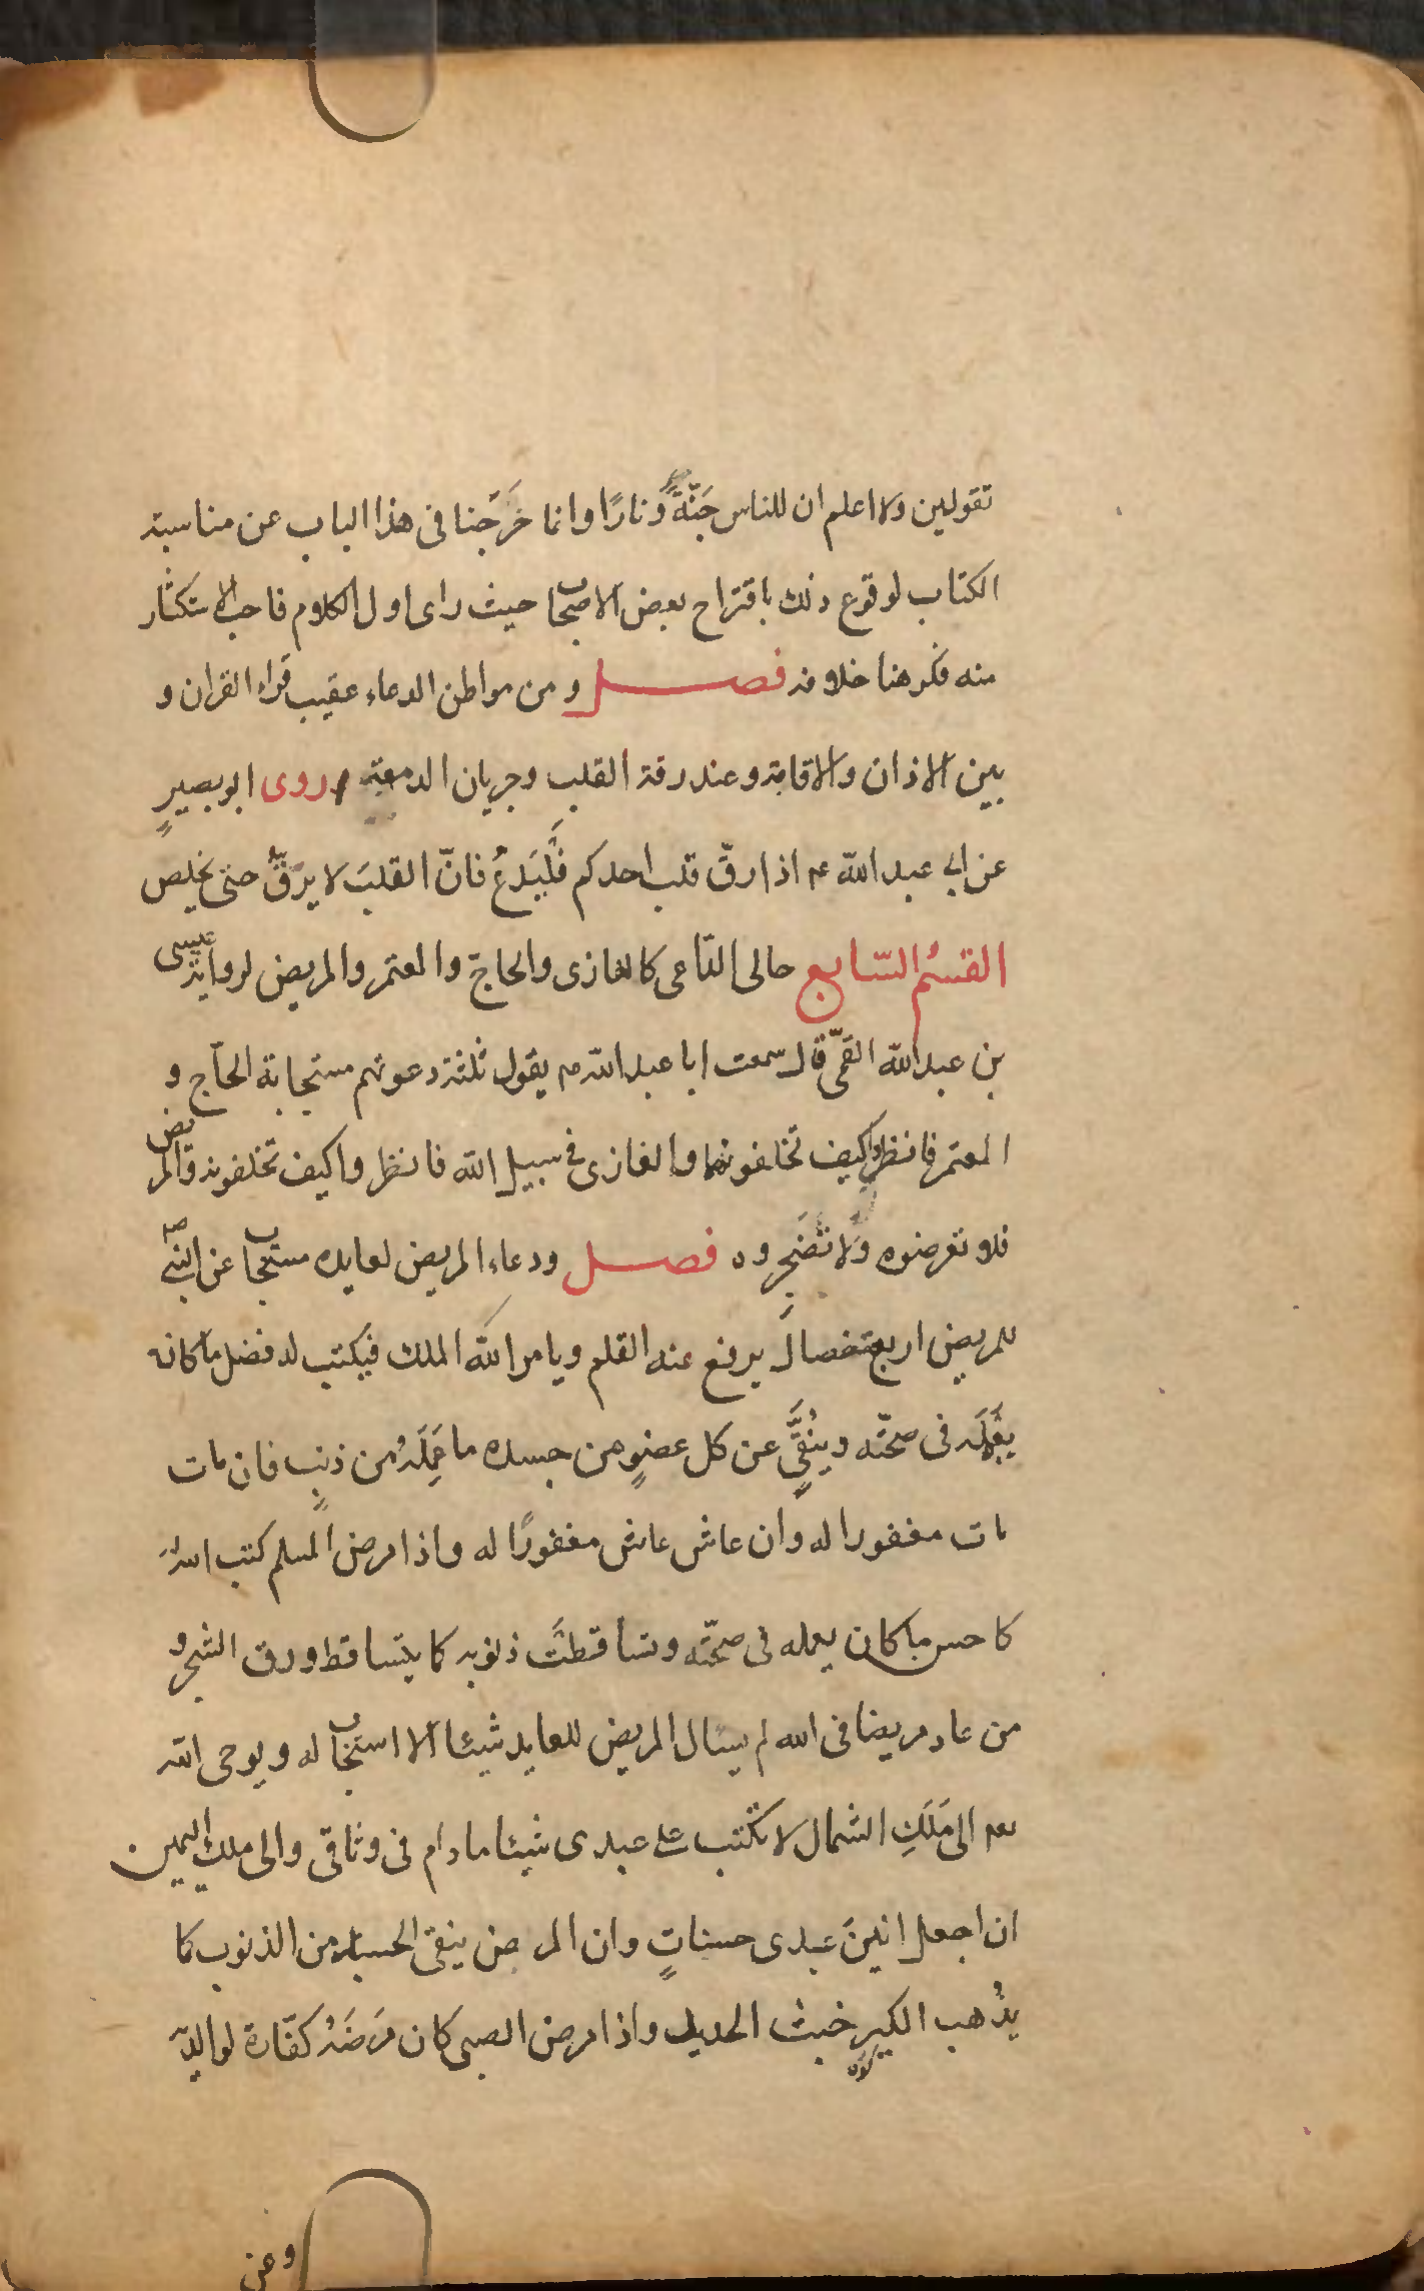 تقولين ولا اعلم ان للناس جَنّةً ونارًا وانما خَرَجنا فى هذا الباب عن مناسبة
الكتاب لوقوع ذلك باقتراح بعض الاصحاب حيث راى اول الكلام فاحب الاستكثار
منه فكرهنا خلافه فصل ومن مواطن الدعاء عقيب قراءة القران و
بين الاذان والاقامة وعند رقة القلب وجريان الدمعة روى ابو بصيرٍ
عن ابى عبد الله عم اذا رقّ قلب احدكم فَلْيَدعُ فانّ القلبَ لا يرّقُّ حتى يخلص
القسمُ السّابع حالى الدّاعى كالغازى والحاجّ والمعتمر والمريض لرواية عيسى
بن عبد الله القمّى قال سمعت ابا عبد الله عم يقول ثلثة دعوتهم مستجابة الحآج و
المعتمر فانظروا كيف تخلفونهما والغازى فى سبيل الله فانظروا كيف تخلفونه والمريض
فلا تعرضوه وَلا تُضَجِروه فصل ودعاء المريض لعايده مستجاب عن النبى ص
للمريض اربع خصالٍ يرفع عنه القلم ويامر الله الملك فيكتب له فضل ما كان
يعْمَلَه فى صحّته وينُقَّى عن كل عضوٍ من جسده ما عَمِلَهُ من ذنبٍ فان مات
مات مغفورا له وان عاش عاش مغفورًا له واذا مرض المسلم كتب الله له
كاحسن ما كان يعمله فى صحّته وتساقطَتْ ذنوبه كما يتساقط ورق الشجر و
من عاد مريضا فى الله لم يسال المريض للعايد شيئا الا استجاب له ويوحى الله
تعم الى مَلَكِ الشمال لا تكْتب على عبدى شيئا ما دام فى وثاقى والى ملك اليمين
ان اجعل انينَ عبدى حسناتٍ وان المرض ينقى الجسد من الذنوب كما
يذُهب الكير خبث الحديد واذا مرض الصبى كان مَرَضَهُ كفّارة لوالديه
كوره
وعن